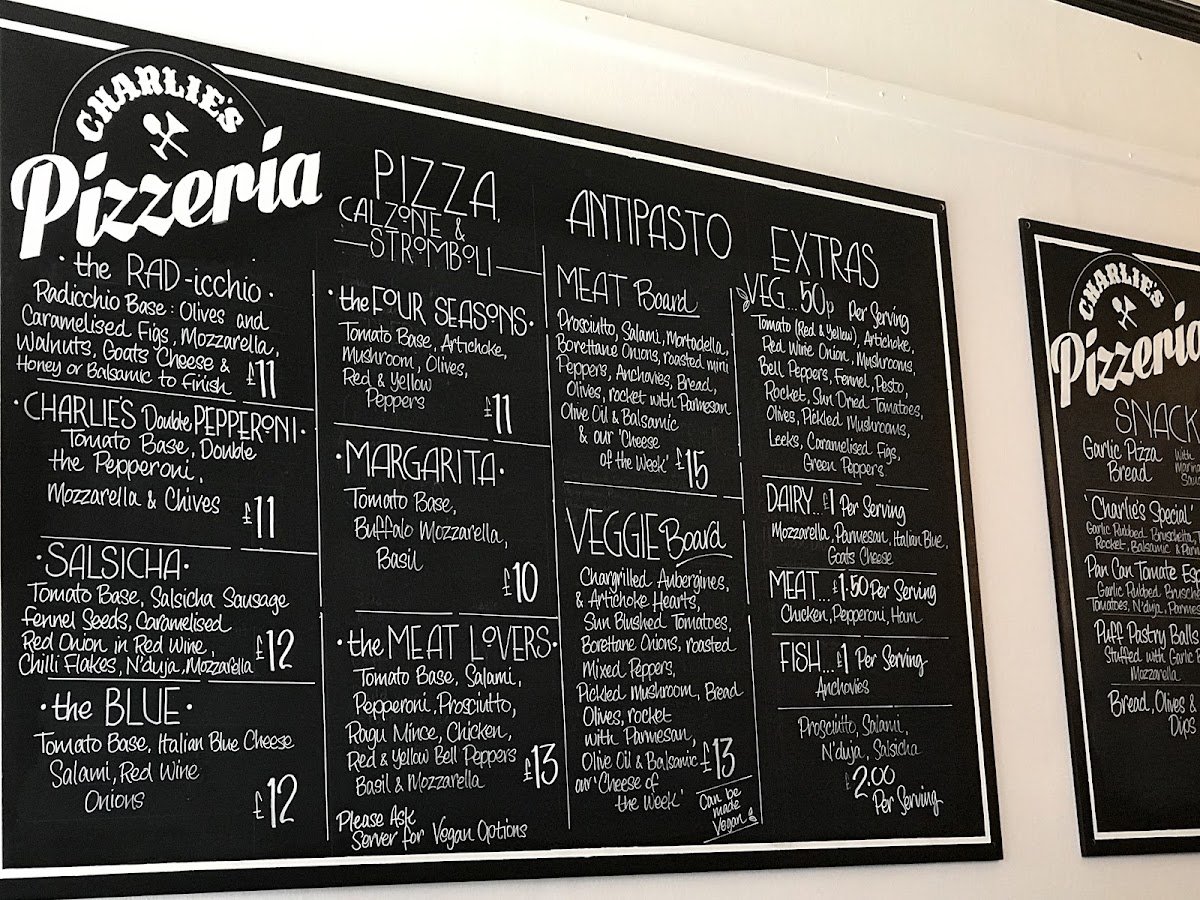 CHARLIE'S
Pizzeria
· the RAD-icchio ·
Radicchio Base: Olives and
Caramelised Figs, Mozzarella,
Walnuts, Goats Cheese &
Honey or Balsamic to Finish £11
· CHARLIE'S Double PEPPERONI ·
Tomato Base, Double
the Pepperoni,
Mozzarella & Chives £11
· SALSICHA ·
Tomato Base, Salsicha Sausage
Fennel Seeds, Caramelised
Red Onion in Red Wine,
Chilli Flakes, N'duja, Mozzarella £12
· the BLUE ·
Tomato Base, Italian Blue Cheese
Salami, Red Wine
Onions £12
PIZZA,
CALZONE &
STROMBOLI
· the FOUR SEASONS ·
Tomato Base, Artichoke,
Mushroom, Olives,
Red & Yellow
Peppers £11
· MARGARITA ·
Tomato Base,
Buffalo Mozzarella,
Basil £10
· the MEAT LOVERS ·
Tomato Base, Salami,
Pepperoni, Prosciutto,
Ragu Mince, Chicken,
Red & Yellow Bell Peppers
Basil & Mozzarella £13
Please Ask
Server for Vegan Options
ANTIPASTO
MEAT Board
Prosciutto, Salami, Mortadella,
Borettane Onions, roasted mini
Peppers, Anchovies, Bread,
Olives, rocket with Parmesan
Olive Oil & Balsamic
& our 'Cheese
of the Week' £15
VEGGIE Board
Chargrilled Aubergines,
& Artichoke Hearts,
Sun Blushed Tomatoes,
Borettane Onions, roasted
Mixed Peppers,
Pickled Mushroom, Bread
Olives, rocket
with Parmesan,
Olive Oil & Balsamic £13
our 'Cheese of
the Week'
Can be
made
Vegan
EXTRAS
VEG... 50p Per Serving
Tomato (Red & Yellow), Artichoke,
Red Wine Onion, Mushrooms,
Bell Peppers, Fennel, Pesto,
Rocket, Sun Dried Tomatoes,
Olives, Pickled Mushrooms,
Leeks, Caramelised Figs,
Green Peppers
DAIRY... £1 Per Serving
Mozzarella, Parmesan, Italian Blue,
Goats Cheese
MEAT... £1.50 Per Serving
Chicken, Pepperoni, Ham
FISH... £1 Per Serving
Anchovies
Prosciutto, Salami,
N'duja, Salsicha
£2.00
Per Serving
CHARLIE'S
Pizzeria
SNACK
Garlic Pizza
Bread
with
'Charlie's Special'
Garlic Rubbed Bruschetta,
Rocket, Balsamic &
Pan Can Tomate
Garlic Rubbed
Tomatoes, N'duja,
Puff Pastry Balls
Stuffed with Garlic
Mozzarella
Bread, Olives &
Dips